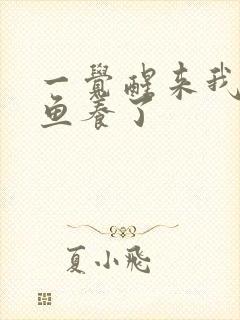 一覺醒来我
鱼養了
夏小飛